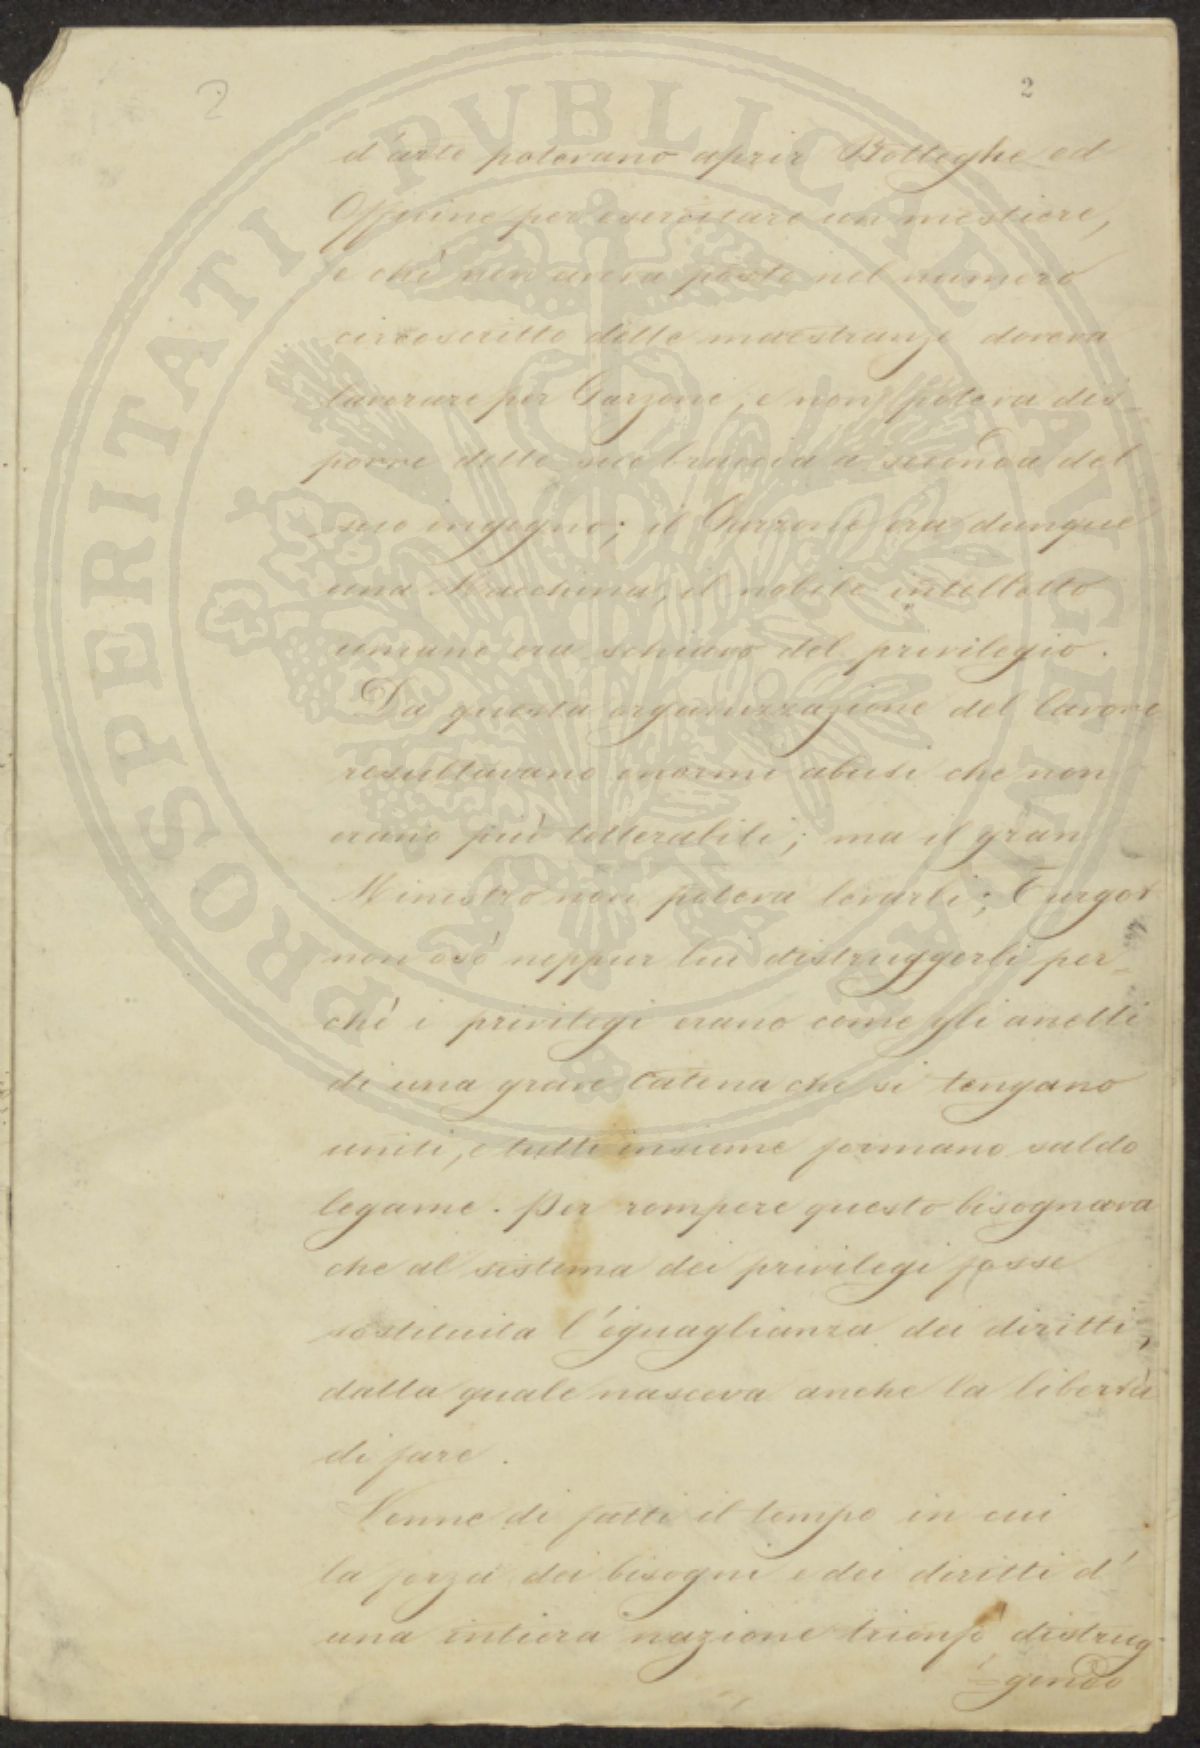 2
2
d'arte potevano aprir Botteghe ed
Officine per esercitare un mestiere,
e chi non aveva posto nel numero
circoscritto delle maestranze doveva
lavorare per Garzone, e non poteva dis-
porre delle sue braccia a seconda del
suo ingegno; il Garzone era dunque
una Macchina, il nobile intelletto
umano era schiavo del privilegio.
Da questa organizzazione del lavoro
resultavano enormi abusi che non
erano più tollerabili; ma il gran
Ministro non poteva levarli; Turgot
non osò neppur lui distruggerli per-
chè i privilegi erano come gli anelli
di una grave Catena che si tengano
uniti, e tutti insieme formano saldo
legame. Per rompere questo bisognava
che al sistema dei privilegi fosse
sostituita l'eguaglianza dei diritti,
dalla quale nasceva anche la libertà
di fare.
Venne di fatti il tempo in cui
la forza dei bisogni e dei diritti d'
una intiera nazione trionfò distrug-
gendo
PROSPERITATI PVBLICAE AVGENDAE